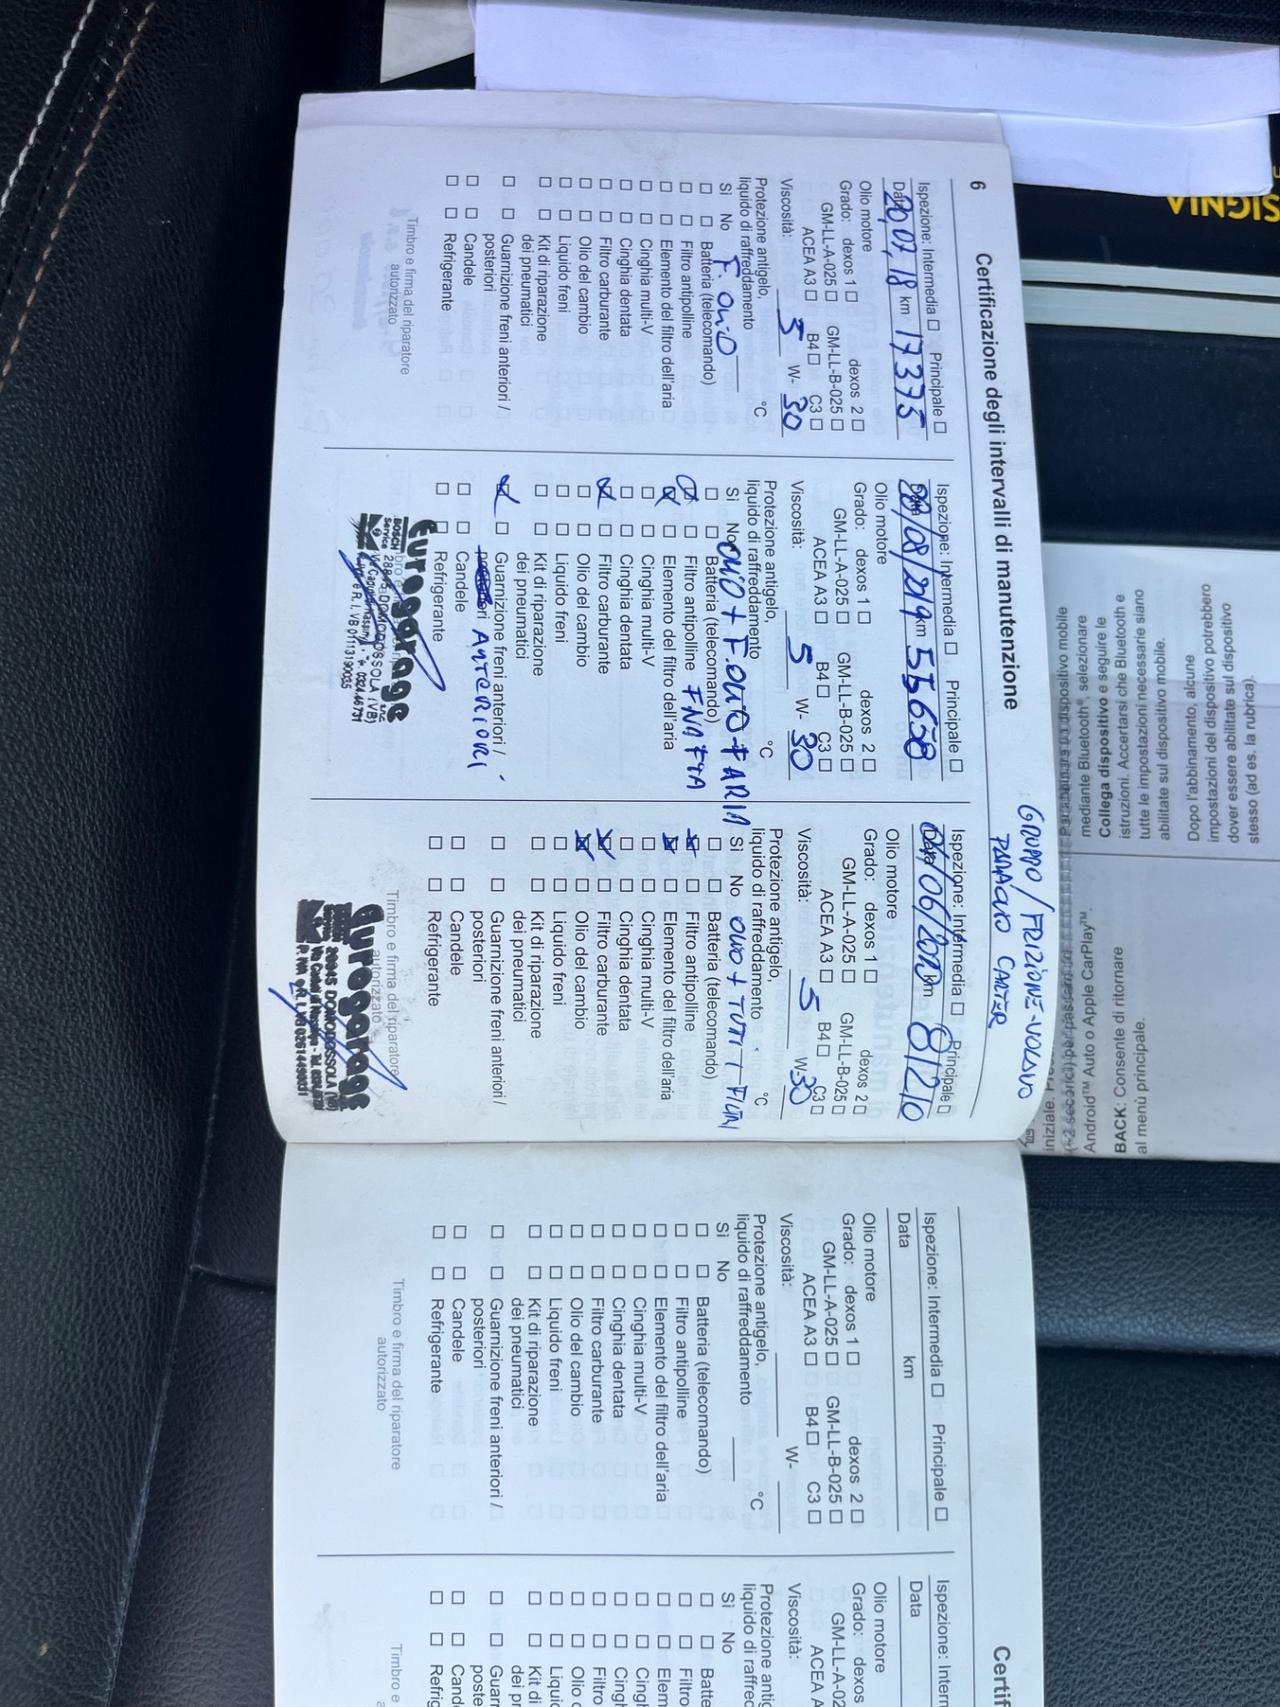 6
Certificazione degli intervalli di manutenzione
Ispezione: Intermedia □ Principale □
Data 20,07,18 km 17375
Olio motore
Grado: dexos 1 □ dexos 2 □
GM-LL-A-025 □ GM-LL-B-025 □
ACEA A3 □ B4 □ C3 □
Viscosità: 5 W- 30
Protezione antigelo,
liquido di raffreddamento °C
Sì No F. OLIO
□ □ Batteria (telecomando)
□ □ Filtro antipolline
□ □ Elemento del filtro dell'aria
□ □ Cinghia multi-V
□ □ Cinghia dentata
□ □ Filtro carburante
□ □ Olio del cambio
□ □ Liquido freni
□ □ Kit di riparazione
dei pneumatici
□ □ Guarnizione freni anteriori /
posteriori
□ □ Candele
□ □ Refrigerante
Timbro e firma del riparatore
autorizzato
Ispezione: Intermedia □ Principale □
08/08/2019 km 55658
Olio motore
Grado: dexos 1 □ dexos 2 □
GM-LL-A-025 □ GM-LL-B-025 □
ACEA A3 □ B4 □ C3 □
Viscosità: 5 W- 30
Protezione antigelo,
liquido di raffreddamento °C
Sì No OLIO + F.OLIO + F ARIA
□ □ Batteria (telecomando)
☒ □ Filtro antipolline F NAFTA
☒ □ Elemento del filtro dell'aria
□ □ Cinghia multi-V
□ □ Cinghia dentata
☒ □ Filtro carburante
□ □ Olio del cambio
□ □ Liquido freni
□ □ Kit di riparazione
dei pneumatici
☒ □ Guarnizione freni anteriori /
ANTERIORI
□ □ Candele
□ □ Refrigerante
Eurogarage
BOSCH
Service
DOMODOSSOLA (VB)
GRUPPO / FRIZIONE-VOLANO
CARTER
Ispezione: Intermedia □ Principale □
Data 01/06/2020 km 81210
Olio motore
Grado: dexos 1 □ dexos 2 □
GM-LL-A-025 □ GM-LL-B-025 □
ACEA A3 □ B4 □ C3 □
Viscosità: 5 W- 30
Protezione antigelo,
liquido di raffreddamento °C
Sì No OLIO + TUTTI I FILTRI
□ □ Batteria (telecomando)
☒ □ Filtro antipolline
☒ □ Elemento del filtro dell'aria
□ □ Cinghia multi-V
□ □ Cinghia dentata
☒ □ Filtro carburante
☒ □ Olio del cambio
□ □ Liquido freni
□ □ Kit di riparazione
dei pneumatici
□ □ Guarnizione freni anteriori /
posteriori
□ □ Candele
□ □ Refrigerante
Timbro e firma del riparatore
autorizzato
Eurogarage
28845 DOMODOSSOLA (VB)
Ispezione: Intermedia □ Principale □
Data km
Olio motore
Grado: dexos 1 □ dexos 2 □
GM-LL-A-025 □ GM-LL-B-025 □
ACEA A3 □ B4 □ C3 □
Viscosità: W-
Protezione antigelo,
liquido di raffreddamento °C
Sì No
□ □ Batteria (telecomando)
□ □ Filtro antipolline
□ □ Elemento del filtro dell'aria
□ □ Cinghia multi-V
□ □ Cinghia dentata
□ □ Filtro carburante
□ □ Olio del cambio
□ □ Liquido freni
□ □ Kit di riparazione
dei pneumatici
□ □ Guarnizione freni anteriori /
posteriori
□ □ Candele
□ □ Refrigerante
Timbro e firma del riparatore
autorizzato
Certif
Ispezione: Interm
Data
Olio motore
Grado: dexos
GM-LL-A-02
ACEA A
Viscosità:
Protezione antig
liquido di raffrec
Sì No
□ □ Batte
□ □ Filtro
□ □ Elem
□ □ Cingh
□ □ Cingh
□ □ Filtro
□ □ Olio c
□ □ Liquic
□ □ Kit di
dei p
□ □ Guar
poste
□ □ Cand
□ □ Refrig
Timbro e
SIGNIA
stesso (ad es. la rubrica).
dover essere abilitate sul dispositivo
impostazioni del dispositivo potrebbero
Dopo l'abbinamento, alcune
abilitate sul dispositivo mobile.
tutte le impostazioni necessarie siano
istruzioni. Accertarsi che Bluetooth e
Collega dispositivo e seguire le
mediante Bluetooth®, selezionare
dispositivo mobile
Android™ Auto o Apple CarPlay™.
BACK: Consente di ritornare
al menù principale.